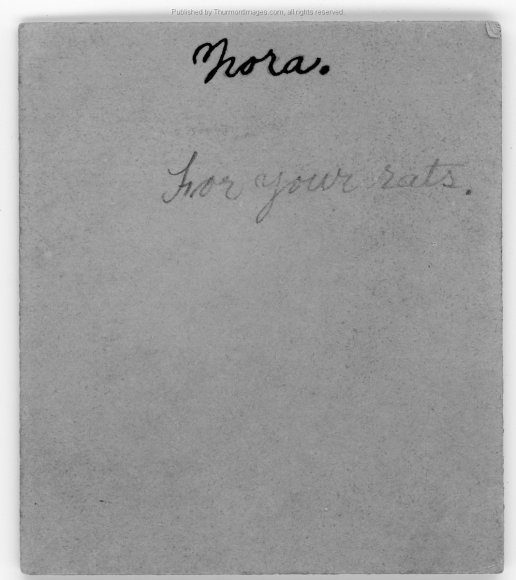 Published by Thurmontimages.com, all rights reserved.
Nora.
For your rats.